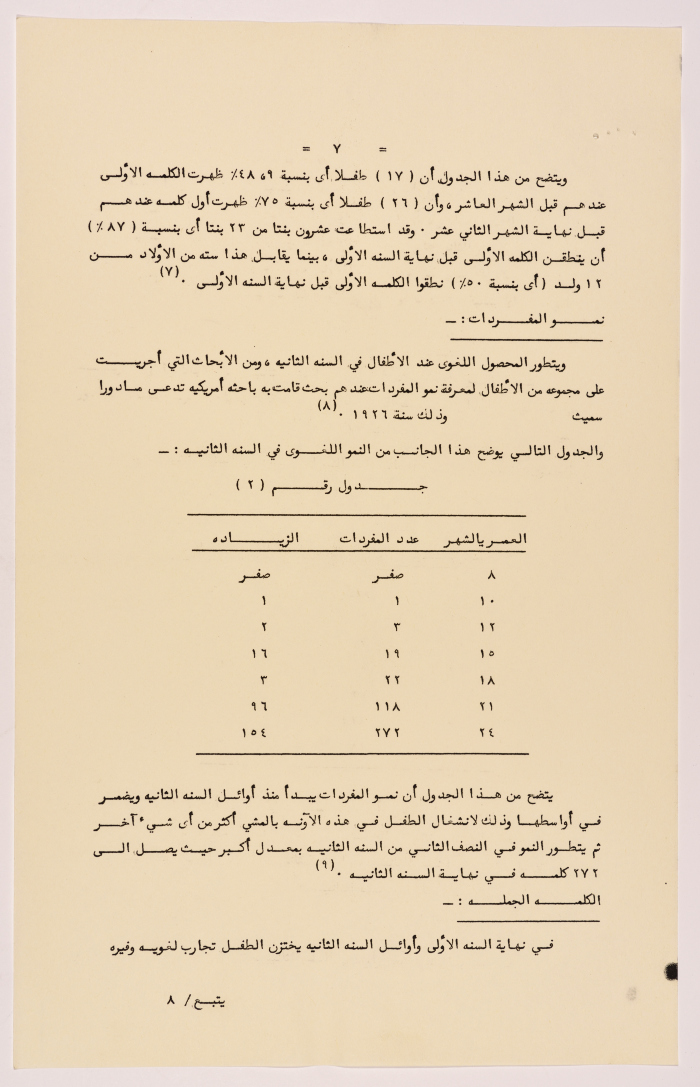 = ٧ =
ويتضح من هذا الجدول أن ( ١٧ ) طفلا أى بنسبة ٤٨،٩٪ ظهرت الكلمه الأولى
عندهم قبل الشهر العاشر، وأن ( ٢٦ ) طفلا أى بنسبة ٧٥٪ ظهرت أول كلمه عندهم
قبل نهاية الشهر الثاني عشر ٠ وقد استطاعت عشرون بنتا من ٢٣ بنتا أى بنسبة ( ٨٧٪ )
أن ينطقن الكلمه الأولى قبل نهاية السنه الأولى ، بينما يقابل هذا سته من الأولاد من
١٢ ولد (أى بنسبة ٥٠٪) نطقوا الكلمه الأولى قبل نهاية السنه الأولى ٠(٧)
نمو المفردات : ـ
ويتطور المحصول اللغوى عند الأطفال في السنه الثانيه ، ومن الأبحاث التي أجريت
على مجموعه من الأطفال لمعرفة نمو المفردات عندهم بحث قامت به باحثه أمريكيه تدعى مادورا
سميث وذلك سنة ١٩٢٦ ٠(٨)
والجدول التالي يوضح هذا الجانب من النمو اللغوى في السنه الثانيه : ـ
جدول رقم ( ٢ )
العمر بالشهر عدد المفردات الزياده
٨ صفر صفر
١٠ ١ ١
١٢ ٣ ٢
١٥ ١٩ ١٦
١٨ ٢٢ ٣
٢١ ١١٨ ٩٦
٢٤ ٢٧٢ ١٥٤
يتضح من هذا الجدول أن نمو المفردات يبدأ منذ أوائل السنه الثانيه ويضمر
في أواسطها وذلك لانشغال الطفل في هذه الآونه بالمشي أكثر من أى شيء آخر
ثم يتطور النمو في النصف الثاني من السنه الثانيه بمعدل أكبر حيث يصل الى
٢٧٢ كلمه في نهاية السنه الثانيه ٠(٩)
الكلمه الجمله : ـ
في نهاية السنه الأولى وأوائل السنه الثانيه يختزن الطفل تجارب لغويه وفيره
يتبع/ ٨